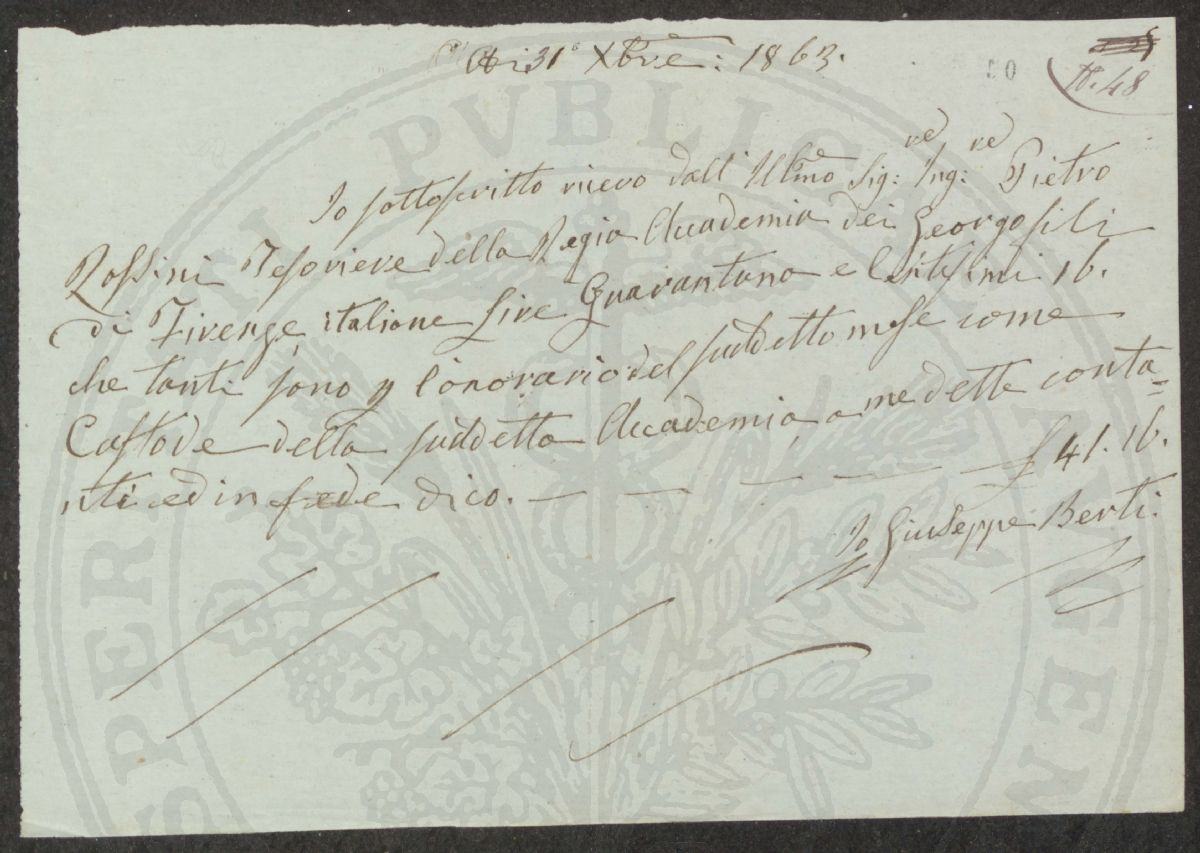 Adi 31 Xbre: 1863.
50
N. 48
Io sottoscritto ricevo dall' Illmo Sig:re Ing:re Pietro
Rossini Tesoriere della Regia Accademia dei Georgofili
di Firenze, italiane Lire Quarantuna e Centesimi 16.
che tanti sono p l'onorario del suddetto mese come
Custode della suddetta Accademia a me dette conta=
nti ed in fede dico. — — — — £ 41. 16.
Io Giuseppe Berti.
PUBLICAE
PROSPERITATI
AUGENDAE